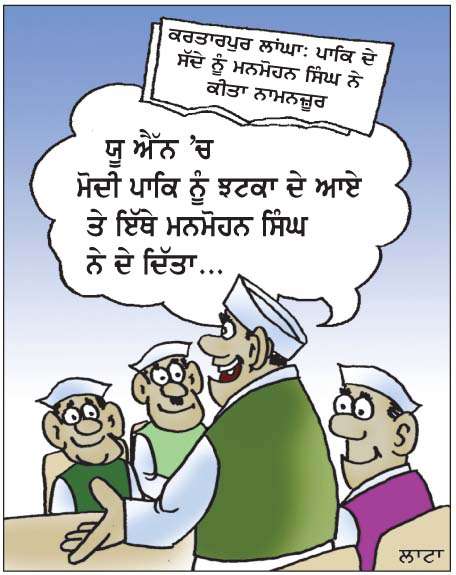 ਕਰਤਾਰਪੁਰ ਲਾਂਘਾ: ਪਾਕਿ ਦੇ
ਸੱਦੇ ਨੂੰ ਮਨਮੋਹਨ ਸਿੰਘ ਨੇ
ਕੀਤਾ ਨਾਮਨਜ਼ੂਰ
ਯੂ ਐੱਨ 'ਚ
ਮੋਦੀ ਪਾਕਿ ਨੂੰ ਝਟਕਾ ਦੇ ਆਏ
ਤੇ ਇੱਥੇ ਮਨਮੋਹਨ ਸਿੰਘ
ਨੇ ਦੇ ਦਿੱਤਾ...
ਲਾਟਾ